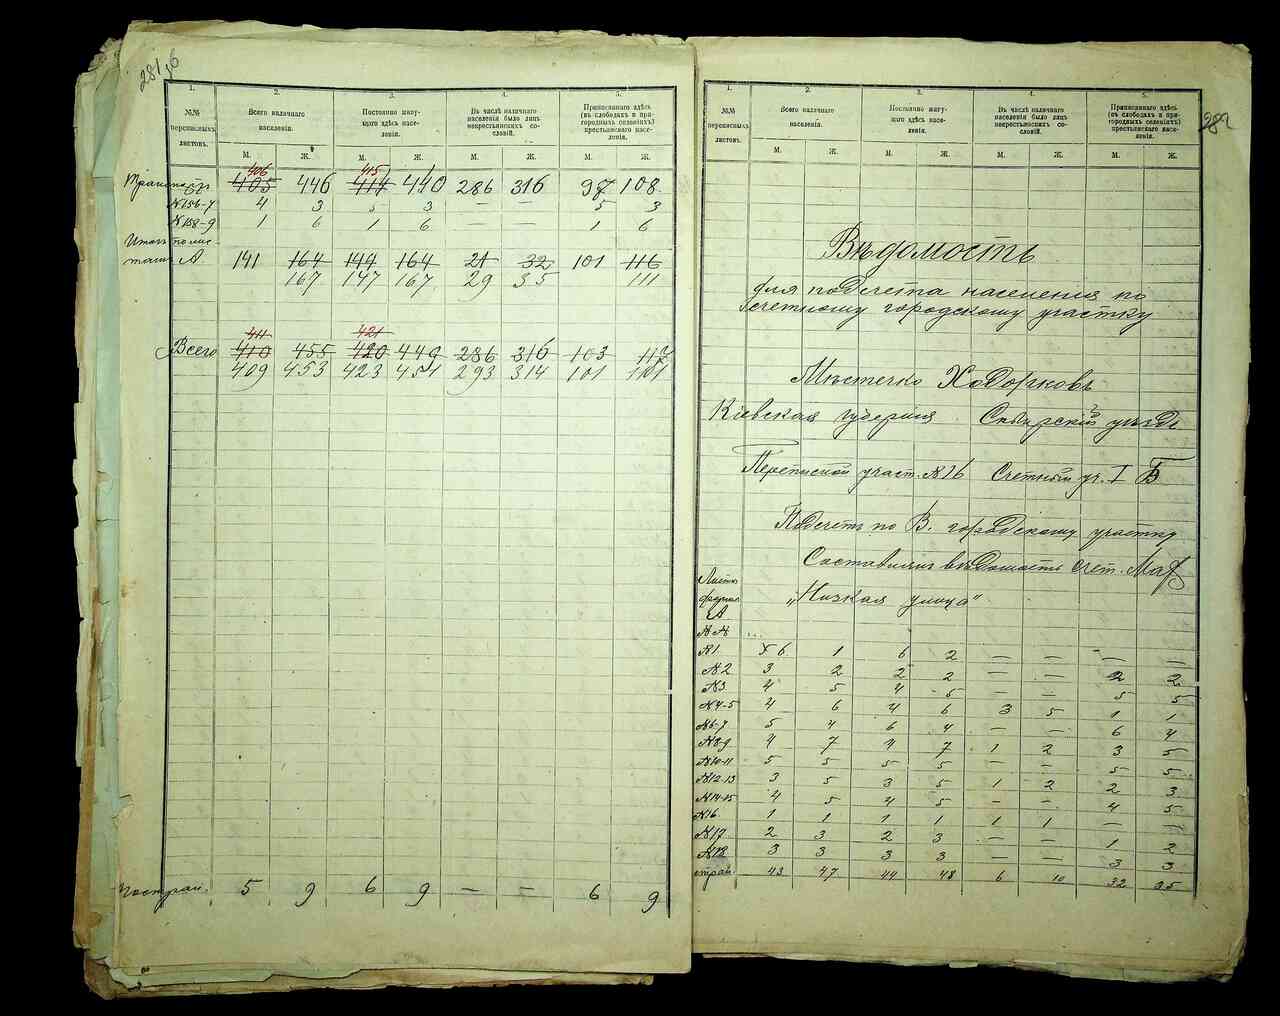 281 об
1. 2. 3. 4. 5.
№№ переписныхъ листовъ.
Всего наличнаго населенія.
Постоянно живущаго здѣсь населенія.
Въ числѣ наличнаго населенія было лицъ некрестьянскихъ сословій.
Приписаннаго здѣсь (въ слободахъ и пригородныхъ селеніяхъ) крестьянскаго населенія.
М. Ж. М. Ж. М. Ж. М. Ж.
406 415
405 446 414 440 286 316 97 108
№156-7 4 3 5 3 — — 5 3
№158-9 1 6 1 6 1 6
Итогъ по листамъ А 141 164 144 164 21 32 101 116
167 147 167 29 35 111
411 421
Всего 410 455 420 449 286 316 103 117
409 453 423 451 293 314 101
5 9 6 9 — — 6 9
282
1. 2. 3. 4. 5.
№№ переписныхъ листовъ.
Всего наличнаго населенія.
Постоянно живущаго здѣсь населенія.
Въ числѣ наличнаго населенія было лицъ некрестьянскихъ сословій.
Приписаннаго здѣсь (въ слободахъ и пригородныхъ селеніяхъ) крестьянскаго населенія.
М. Ж. М. Ж. М. Ж. М. Ж.
Вѣдомость
для подсчета населенія по
счетному городскому участку
Мѣстечко Ходорковъ
Кіевская губернія Сквирскій уѣздъ
Переписной участ. №16 Счетный уч. I Б
Подсчетъ по В. городскому участку
Составилъ вѣдомость счет.
Листы формы А „Низкая улица“
№№
№1 6 1 6 2 — — — —
№2 3 2 2 2 — — 2 2
№3 4 5 4 5 — — 5 5
№4-5 4 6 4 6 3 5 1 1
№6-7 5 4 6 4 — — 6 4
№8-9 4 7 4 7 1 2 3 5
№10-11 5 5 5 5 — — 5 5
№12-13 3 5 3 5 1 2 2 3
№14-15 4 5 4 5 — — 4 5
№16 1 1 1 1 1 1 — —
№17 2 3 2 3 — — 1 2
№18 3 3 3 3 — — 3 3
стран. 43 47 44 48 6 10 32 35